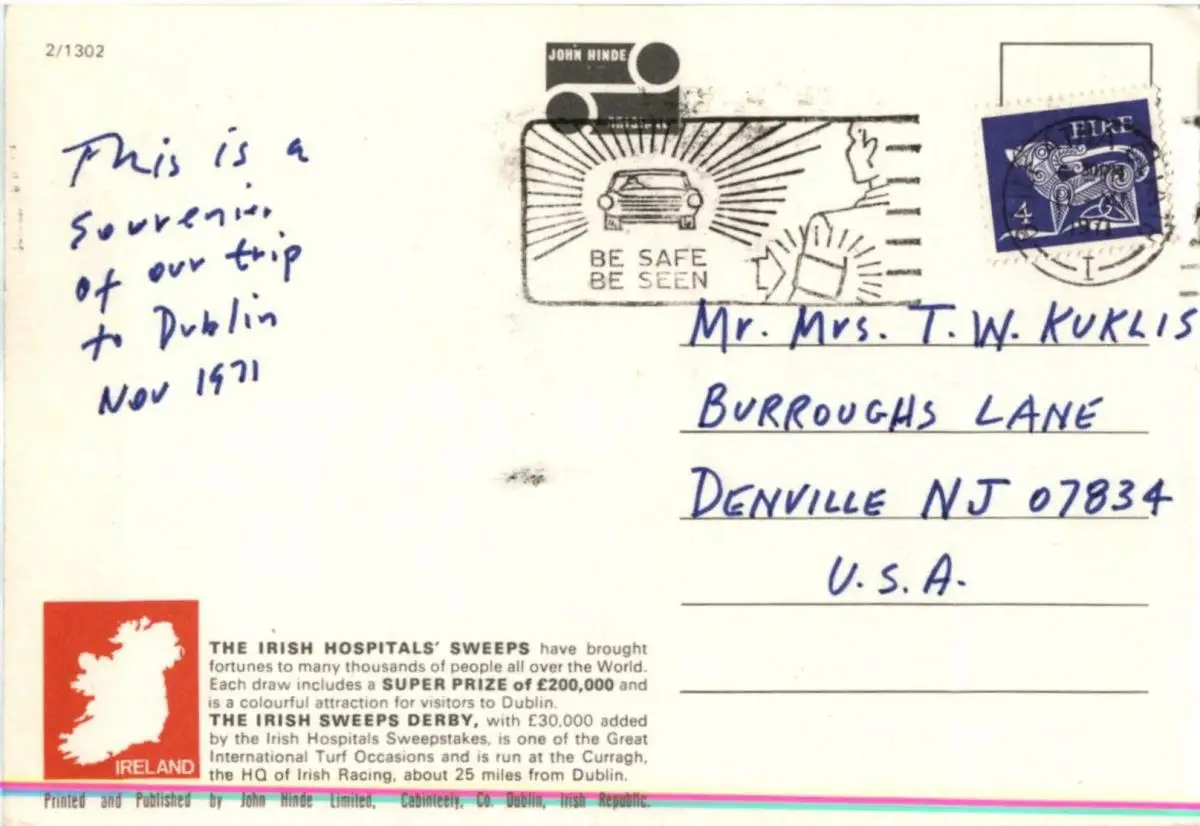 2/1302
JOHN HINDE
This is a
souvenir
of our trip
to Dublin
Nov 1971
BE SAFE
BE SEEN
EIRE
4
1971
I
Mr. Mrs. T. W. KUKLIS
BURROUGHS LANE
DENVILLE NJ 07834
U.S.A.
THE IRISH HOSPITALS' SWEEPS have brought
fortunes to many thousands of people all over the World.
Each draw includes a SUPER PRIZE of £200,000 and
is a colourful attraction for visitors to Dublin.
THE IRISH SWEEPS DERBY, with £30,000 added
by the Irish Hospitals Sweepstakes, is one of the Great
International Turf Occasions and is run at the Curragh,
the HQ of Irish Racing, about 25 miles from Dublin.
IRELAND
Printed and Published by John Hinde Limited, Cabinteely, Co. Dublin, Irish Republic.